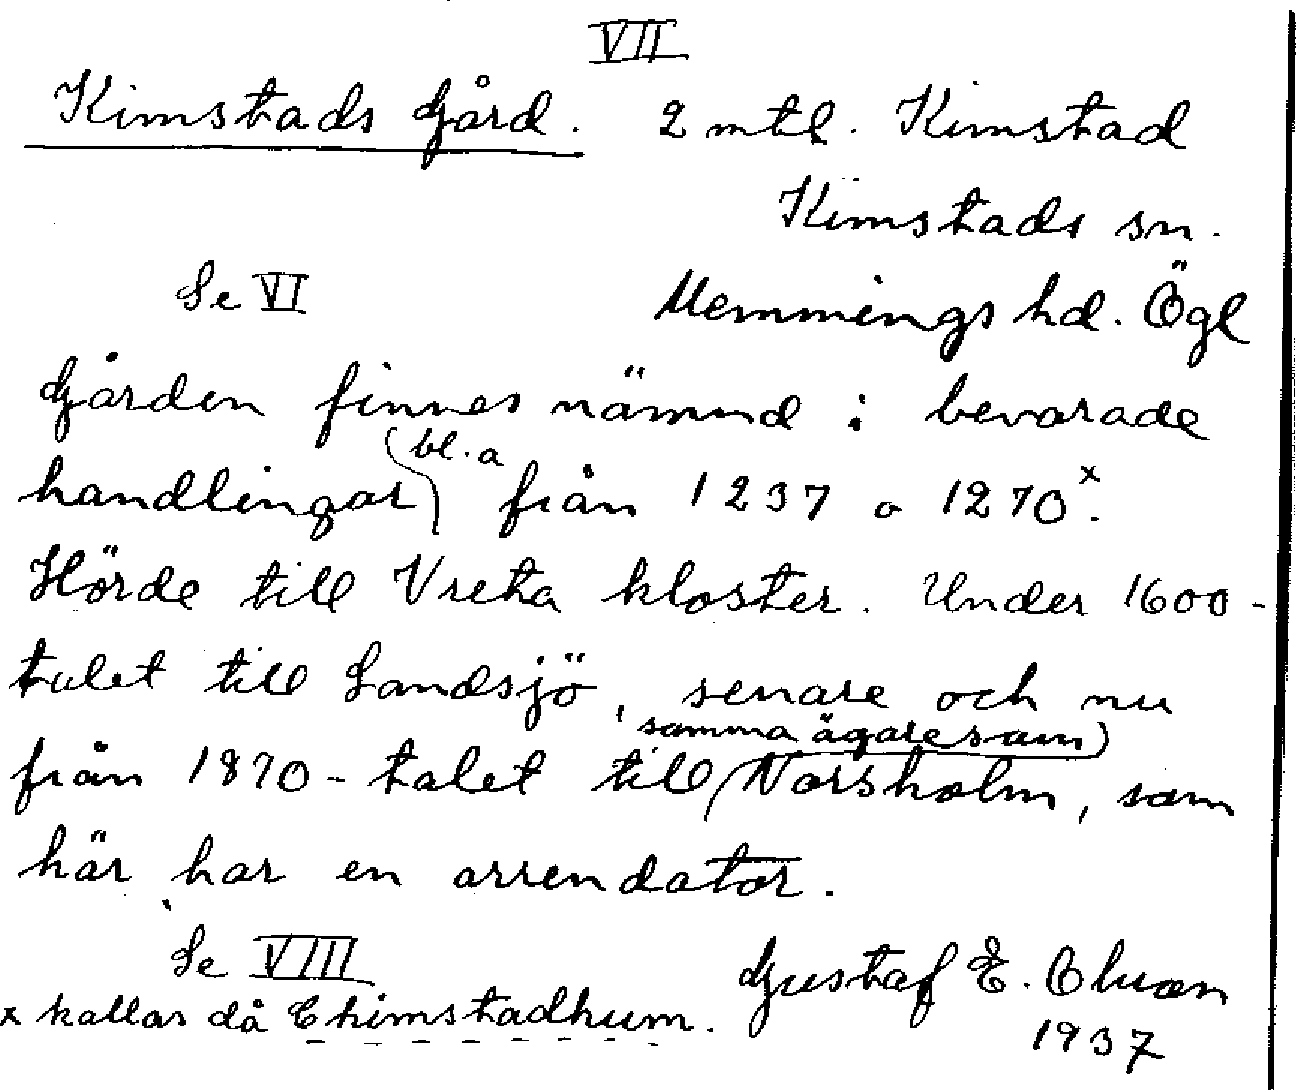 VII
Kimstads gård. 2 mtl. Kimstad
Kimstads sn.
Se VI Memmings hd. Ögl
Gården finnes nämnd i bevarade
handlingar bl.a från 1237 o 1270x.
Hörde till Vreta kloster. Under 1600-
talet till Landsjö, senare och nu
från 1870-talet till samma ägare som Norsholm, som
här har en arrendator.
Se VIII Gustaf E.
x kallas då Chimstadhum. 1937